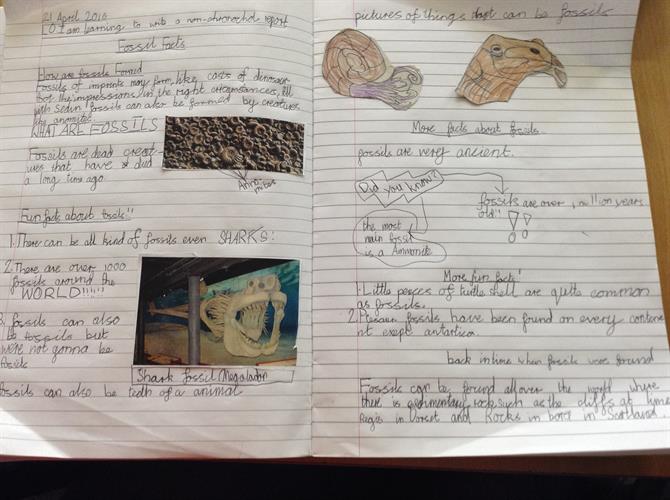 21 April 2016
LO I am learning to write a non-chronological report
Fossil Facts
How are fossils Formed
Fossils of imprints may form, like casts of dinosaur
of the impressions in the right circumstances, fill
with fossils can also be formed by creatures
like
WHAT ARE FOSSILS
Fossils are dead creat-
ures that have died
a long time ago
Ammo
nites
Fun facts about fossils!!
1. There can be all kind of fossils even SHARKS!
2. There are over 1000
fossils around the
WORLD!!!!!
3. fossils can also
be fossils but
were not gonna be
fossils
Shark fossil Megalodon
fossils can also be teeth of a animal
pictures of things that can be fossils
More facts about fossils.
fossils are very ancient.
Did you know?
fossils are over 1 million years
old!!
the most
main fossil
is a Ammonite
More fun facts!
1. Little peeces of turtle shell are quite common
as fossils.
2. fossils have been found on every contene
nt exept antartica.
back in time when fossils were found
Fossils can be found all over the world where
there is sedimentary rock, such as the cliffs at lime
Regis in Dorset and Rocks in in Scotland.